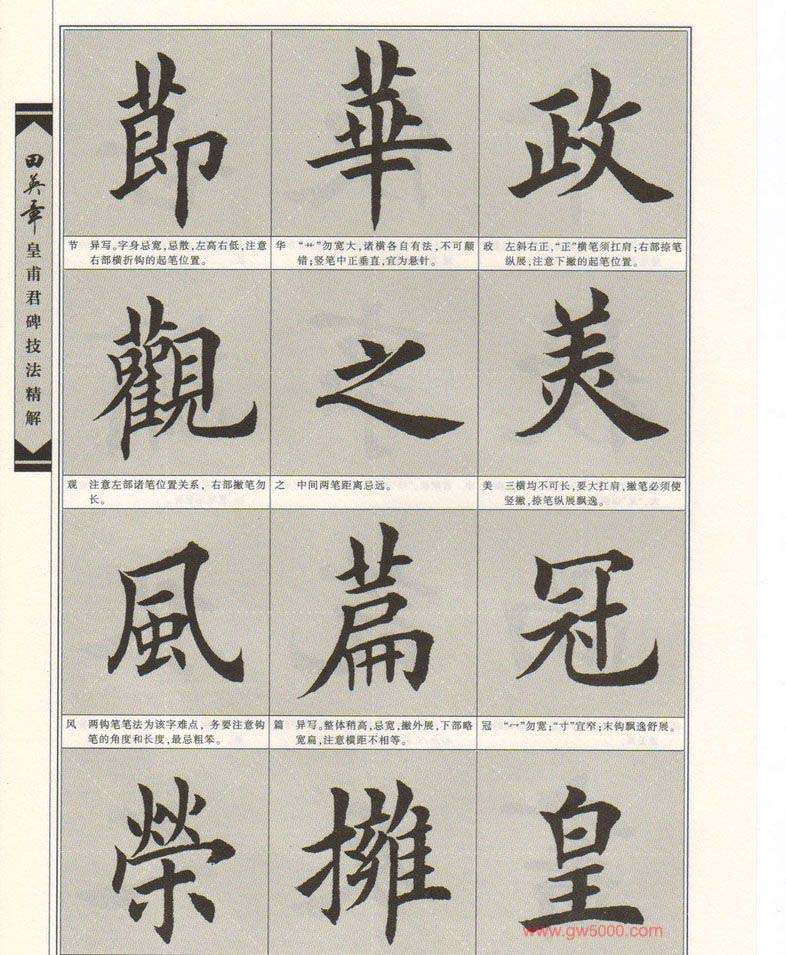 田英章
皇甫君碑技法精解
莭
華
政
节 异写。字身忌宽,忌散,左高右低,注意
右部横折钩的起笔位置。
华 “艹”勿宽大,诸横各自有法,不可颠
错;竖笔中正垂直,宜为悬针。
政 左斜右正,“正”横笔须扛肩;右部捺笔
纵展,注意下撇的起笔位置。
觀
之
美
观 注意左部诸笔位置关系,右部撇笔勿
长。
之 中间两笔距离忌远。
美 三横均不可长,要大扛肩,撇笔必须使
竖撇,捺笔纵展飘逸。
風
萹
冠
风 两钩笔笔法为该字难点,务要注意钩
笔的角度和长度,最忌粗笨。
篇 异写。整体稍高,忌宽,撇外展,下部略
宽扁,注意横距不相等。
冠 “冖”勿宽;“寸”宜窄;末钩飘逸舒展。
榮
擁
皇
www.gw5000.com